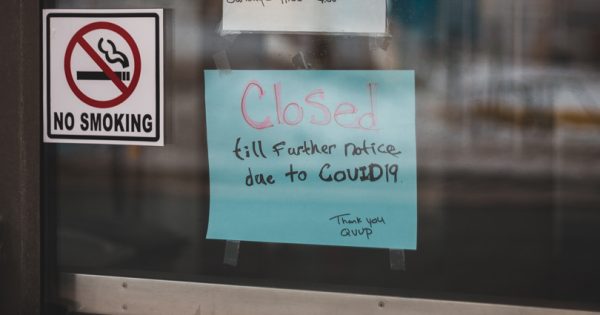 NO SMOKING
Closed
till Further notice
due to COVID19.
Thank you
QVVP